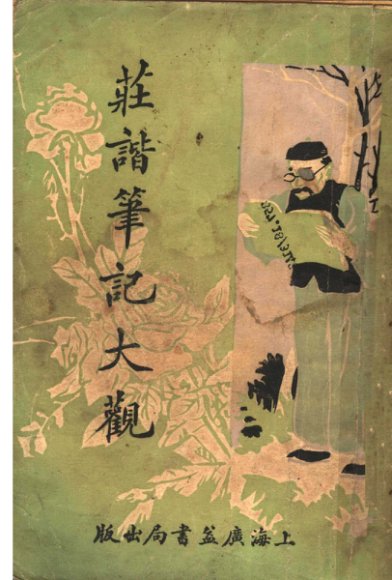 莊諧筆記大觀
上海廣益書局出版